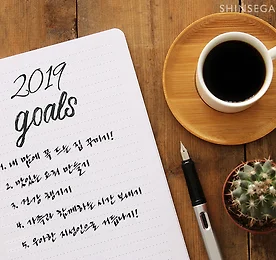 SHINSEGA
2019
goals
1. 내 맘에 쏙 드는 집 꾸미기!
2. 맛있는 요리 만들기
3. 건강 챙기기
4. 가족과 함께하는 시간 보내기
5. 우아한 지성인으로 거듭나기!